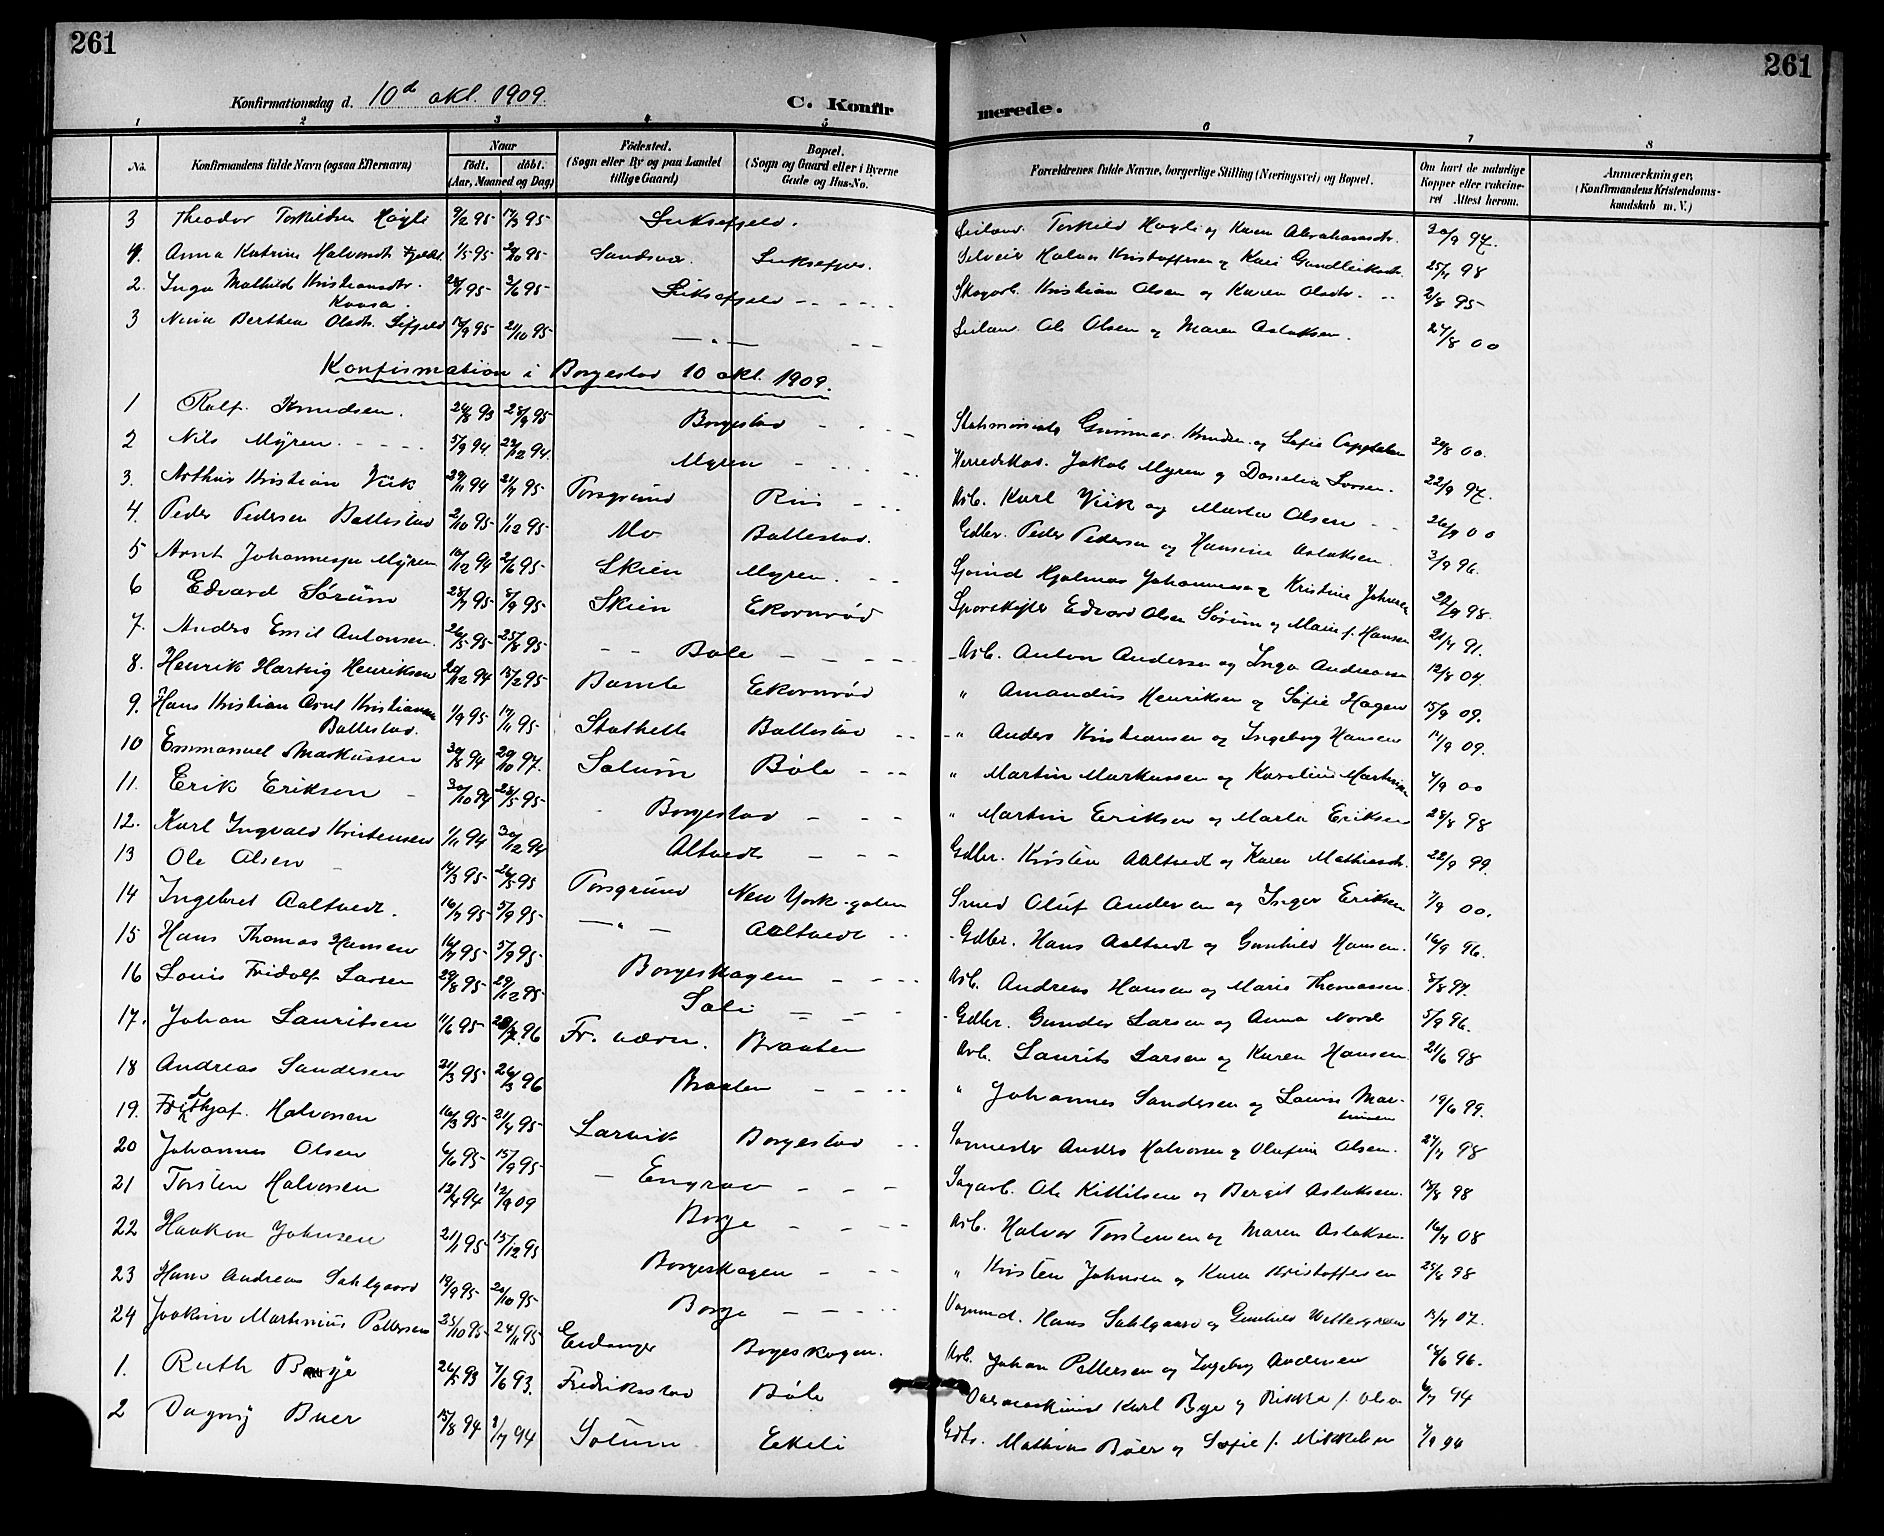 261
261
Konfirmationsdag d. 10d okt. 1909.
C. Konfir
merede.
1 2 3 4 5 6 7 8
No. Konfirmandens fulde Navn (ogsaa Efternavn) Naar Födested. Bopæl. Forældrenes fulde Navne, borgerlige Stilling (Næringsvei) og Bopæl. Om havt de naturlige Anmærkninger,
födt. döbt. (Sogn eller By og paa Landet (Sogn og Gaard eller i Byerne Kopper eller vakcine- (Konfirmandens Kristendoms-
(Aar, Maaned og Dag) tillige Gaard) Gade og Hus-No. ret Attest herom. kundskab m. V.)
3 Theodor Torkildsen Høgli 9/2 95 17/3 95 Luksefjeld. Torkild Høgli og Karen Abrahamsdtr. 30/9 97.
4. Anna Katrine Halvorsdt. 1/5 95 Sandsvær. Luksefjeld. Selveier Halvor Kristoffersen og Kari Gundleiksdt. 98
2. Inga Mathilde Kristiansdtr. 95 3/6 95 Luksefjeld Skogarb. Kristian Olsen og Karen Olsdtr. 2/8 95
Kaasa.
3 Berthea Olsdtr. 95 21/10 95 Ole Olsen og Maren Aslaksen. 27/8 00
Konfirmation i Borgestad 10 okt. 1909.
1 Rolf Knudsen. 26/8 93 95 Borgestad Statsminister Gunnar Knudsen og Sofie Cappelen 00.
2 Nils Myren. 5/9 94 94. Myren Jakob Myren og 22/9 97.
3. Arthur Kristian Vik 29/11 94 21/4 95 Porsgrund Riis Arb. Karl Vik og Marta Olsen 26/9 00
4. Peder Pedersen Ballestad 2/10 95 1/12 95 Mo Ballestad. Gdbr. Peder Pedersen og Hansine Aslaksen. 3/9 96.
5 Arnt Johannessen Myren 16/12 94 2/6 95 Skien Myren. Hjalmar Johannessen og Kristine Johnsen 22/9 98.
6 Edvard Sørum 28/7 95 8/9 95 Skien Ekornrød Sporskifter Edvard Olsen Sørum og Marie f. Hansen 91.
7. Anders Emil Antonsen. 26/5 95 25/8 95 Bøle Arb. Anton Andersen og Inga Andreasen 12/8 04.
8. Henrik Hartvig Henriksen 94 95 Bamle Ekornrød " Amandus Henriksen og Sofie Hagen 15/9 09.
9. Hans Kristian Arnt Kristiansen 1/9 95 17/11 95 Stathelle Ballestad " Anders Kristiansen og Ingeborg Hansen 09.
Ballestad.
10 Emmanuel Markussen 94 97. Solum Bøle " Martin Markussen og Karoline 00
11. Erik Eriksen 30/10 94 95 Borgestad " Martin Eriksen og Marta Eriksen 28/8 98
12. Karl Ingvald Kristensen 1/11 94 30/12 94 Altvedt Gdbr. Kristen Aaltvedt og Karen Mathiasdt. 22/9 99.
13 Ole Olsen 95 26/5 95 Porsgrund New York-galen Smed Oluf Andersen og Inger Eriksen 00.
14 Ingebret Aaltvedt. 16/7 95 5/9 95 — " — Aaltvedt Gdbr. Hans Aaltvedt og Gunhild Hansen. 16/9 96.
15 Hans Thomas Hansen 95 95 Borgeskogen Arb. Andreas Hansen og Marie Thomassen. 97.
16 Louis Fridolf Larsen 29/8 95 29/12 95 Soli Gdbr. Gunder Larsen og Anna 5/9 96.
17. Johan Lauritsen 11/6 95 96 Fr. værn. Braaten Arb. Laurits Larsen og Karen Hansen 21/6 98
18 Andreas Sandersen 21/3 95 26/3 96 Braaten " Johannes Sandersen og Lovise Mar- 19/6 99.
tinsen
19. Frithjof. Halvorsen 16/3 95 21/4 95 Larvik Borgestad Anders Halvorsen og Olufine Olsen. 98
20 Johannes Olsen 6/6 95 15/9 95 Engrav Sagarb. Ole Kittilsen og Bergit Aslaksen. 98
21 Torsten Halvorsen 12/4 94 12/9 09 Borge Arb. Halvor Torstensen og Maren Aslaksen. 08
22 Haakon Johnsen 21/1 95 15/12 95 Borgeskogen " Kristen Johnsen og Karen Kristoffersen 98
23 Hans Andreas Sahlgaard 19/9 95 20/10 95 Borge Hans Sahlgaard og Gunhild Wettergreen 07.
24 Joakim Martinius Pettersen 95 24/11 95 Eidanger Borgeskogen. Arb. Johan Pettersen og Ingeborg Andersen 96.
1. Ruth Bye 26/3 93 7/6 93. Fredrikstad Bøle Karl Bye og Rikka f. Olsen 94
2 Dagny Buer 15/8 94 94 Solum Ekeli Gdbr. Mathias Böer og Sofie f. Mikkelsen 94